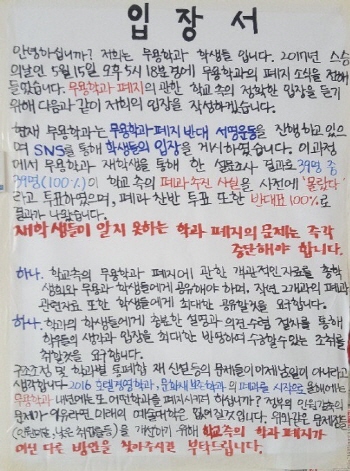 입장서
안녕하십니까? 저희는 무용학과 학생들 입니다. 2017년 스승
의날인 5월15일 오후 5시 18분경에 무용학과의 폐지 소식을 전해
들었습니다. 무용학과 폐지의 관한 학교 측의 정확한 입장을 듣기
위해 다음과 같이 저희의 입장을 작성하겠습니다.
현재 무용학과는 무용학과 폐지 반대 서명운동을 진행하고 있으
며 SNS를 통해 학생들의 입장을 게시하였습니다. 이 과정
에서 무용학과 재학생을 통해 한 설문조사 결과로 39명 중
39명(100%)이 학교 측의 폐과 추진 사실을 사전에 '몰랐다'
라고 투표하였으며, 폐과 찬반 투표 또한 반대표 100%로
결과가 나왔습니다.
재학생들이 알지 못하는 학과 폐지의 문제는 즉각
중단해야 합니다.
하나. 학교측의 무용학과 폐지에 관한 객관적인 자료를 총학
생회와 무용과 학생들에게 공유해야 하며, 작년 2개과의 폐과
관련자료 또한 학생들에게 최대한 공유할것을 요구합니다.
하나. 학과의 학생들에게 충분한 설명과 의견수렴 절차를 통해
학우들의 생각과 입장을 최대한 반영하여 수긍할수 있는 조취를
취할것을 요구합니다.
구조조정 및 학과별 통폐합 재 신설 등의 문제들이 어제 오늘일이 아니라고
생각합니다. 2016 호텔경영학과, 문화재보존학과의 폐과를 시작으로 올해에는
무용학과 내년에는 또 어떤학과를 폐지시키려 하십니까? 정부의 인원감축의
문제가 이유라면 미래의 예술대학은 없어질것입니다. 위와같은 문제점들
(인원미달, 낮은 취업률 등)을 개선하기 위해 학교측의 학과 폐지가
아닌 다른 방안을 찾아주시길 부탁드립니다.